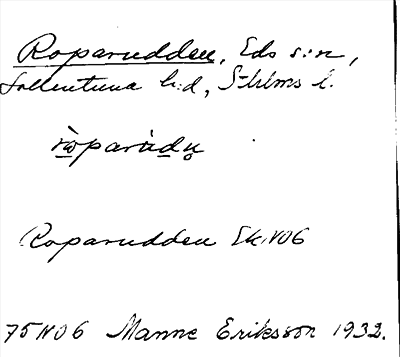 Roparudden, Eds s:n,
Sollentuna h:d, St-hlms l.
ròparùdn̥
Roparudden Ek.N06
75 N06 Manne Eriksson 1932.